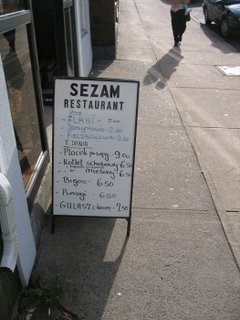 SEZAM
RESTAURANT
- FLAKI -
- Jarzynowa - 2.50
- PIECZARKOWA - 2.50
II DANIA
- Placek po węg. 9.00
- Kotlet schabowy 6.50
- mielony 6.50
- Bigos - 6.50
- Pierogi - 6.50
- GULASZ z 7.50